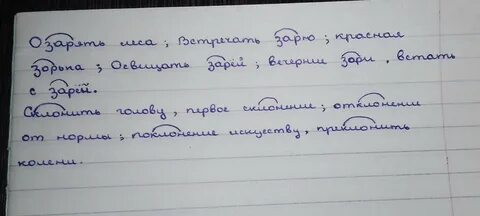 Озарять леса ; Встречать зарю ; красная
зорька ; Освещать зарёй ; вечерние зари , встать
с зарёй.
Склонить голову , первое склонение ; отклонение
от нормы ; поклонение искусству , преклонить
колени.